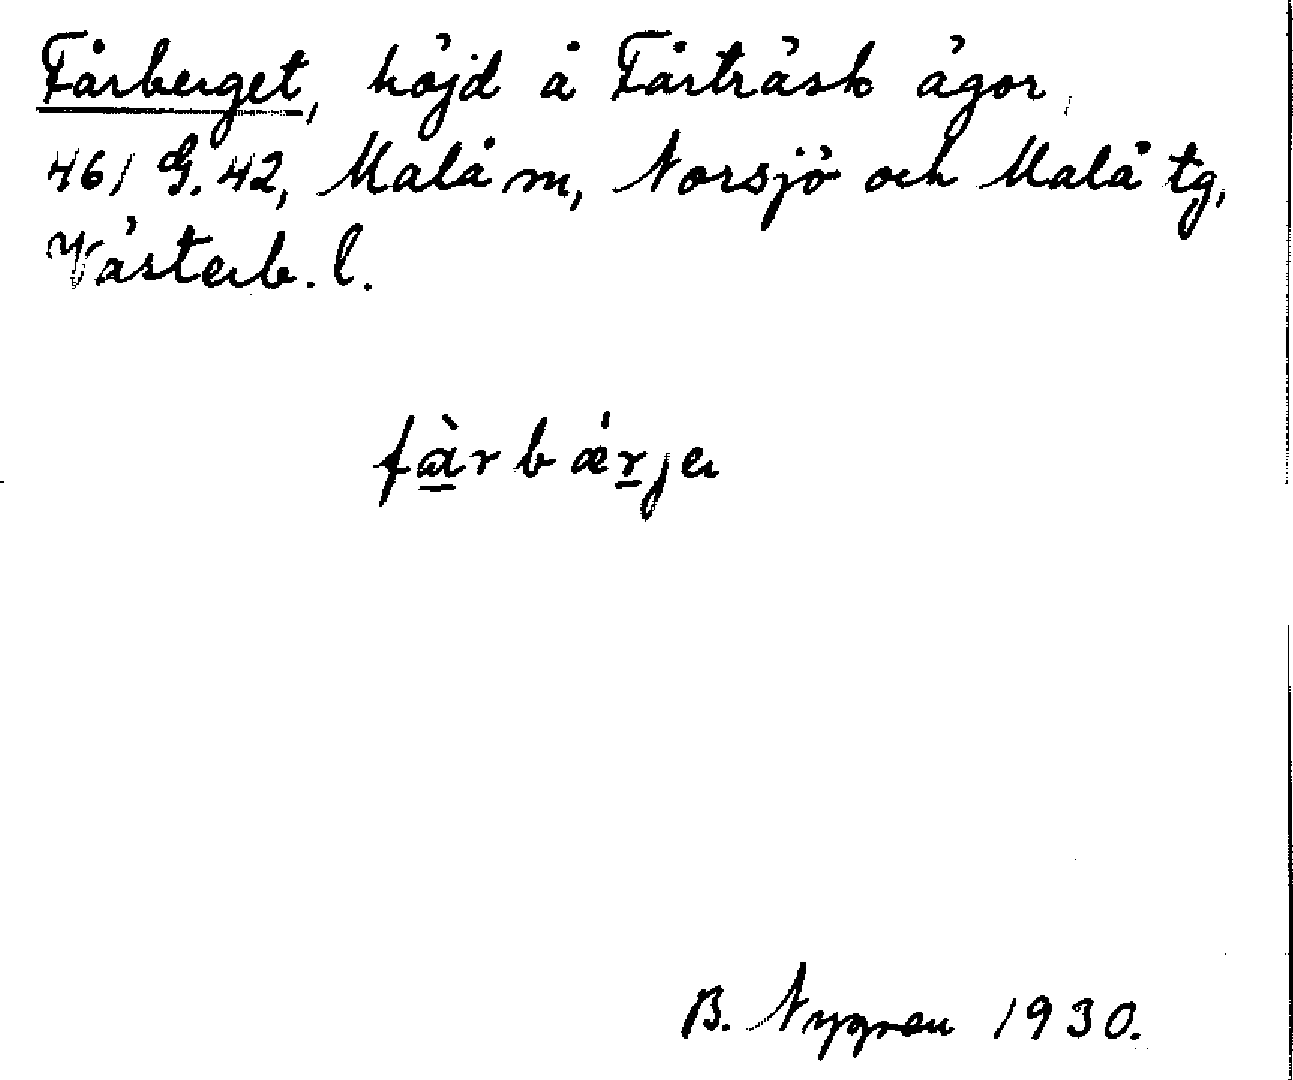 Fårberget, höjd å Fårträsk ägor,
461 G. 42, Malå m, Norsjö och Malå tg,
Västerb. l.
fàrbǽrje
B. Nygren 1930.